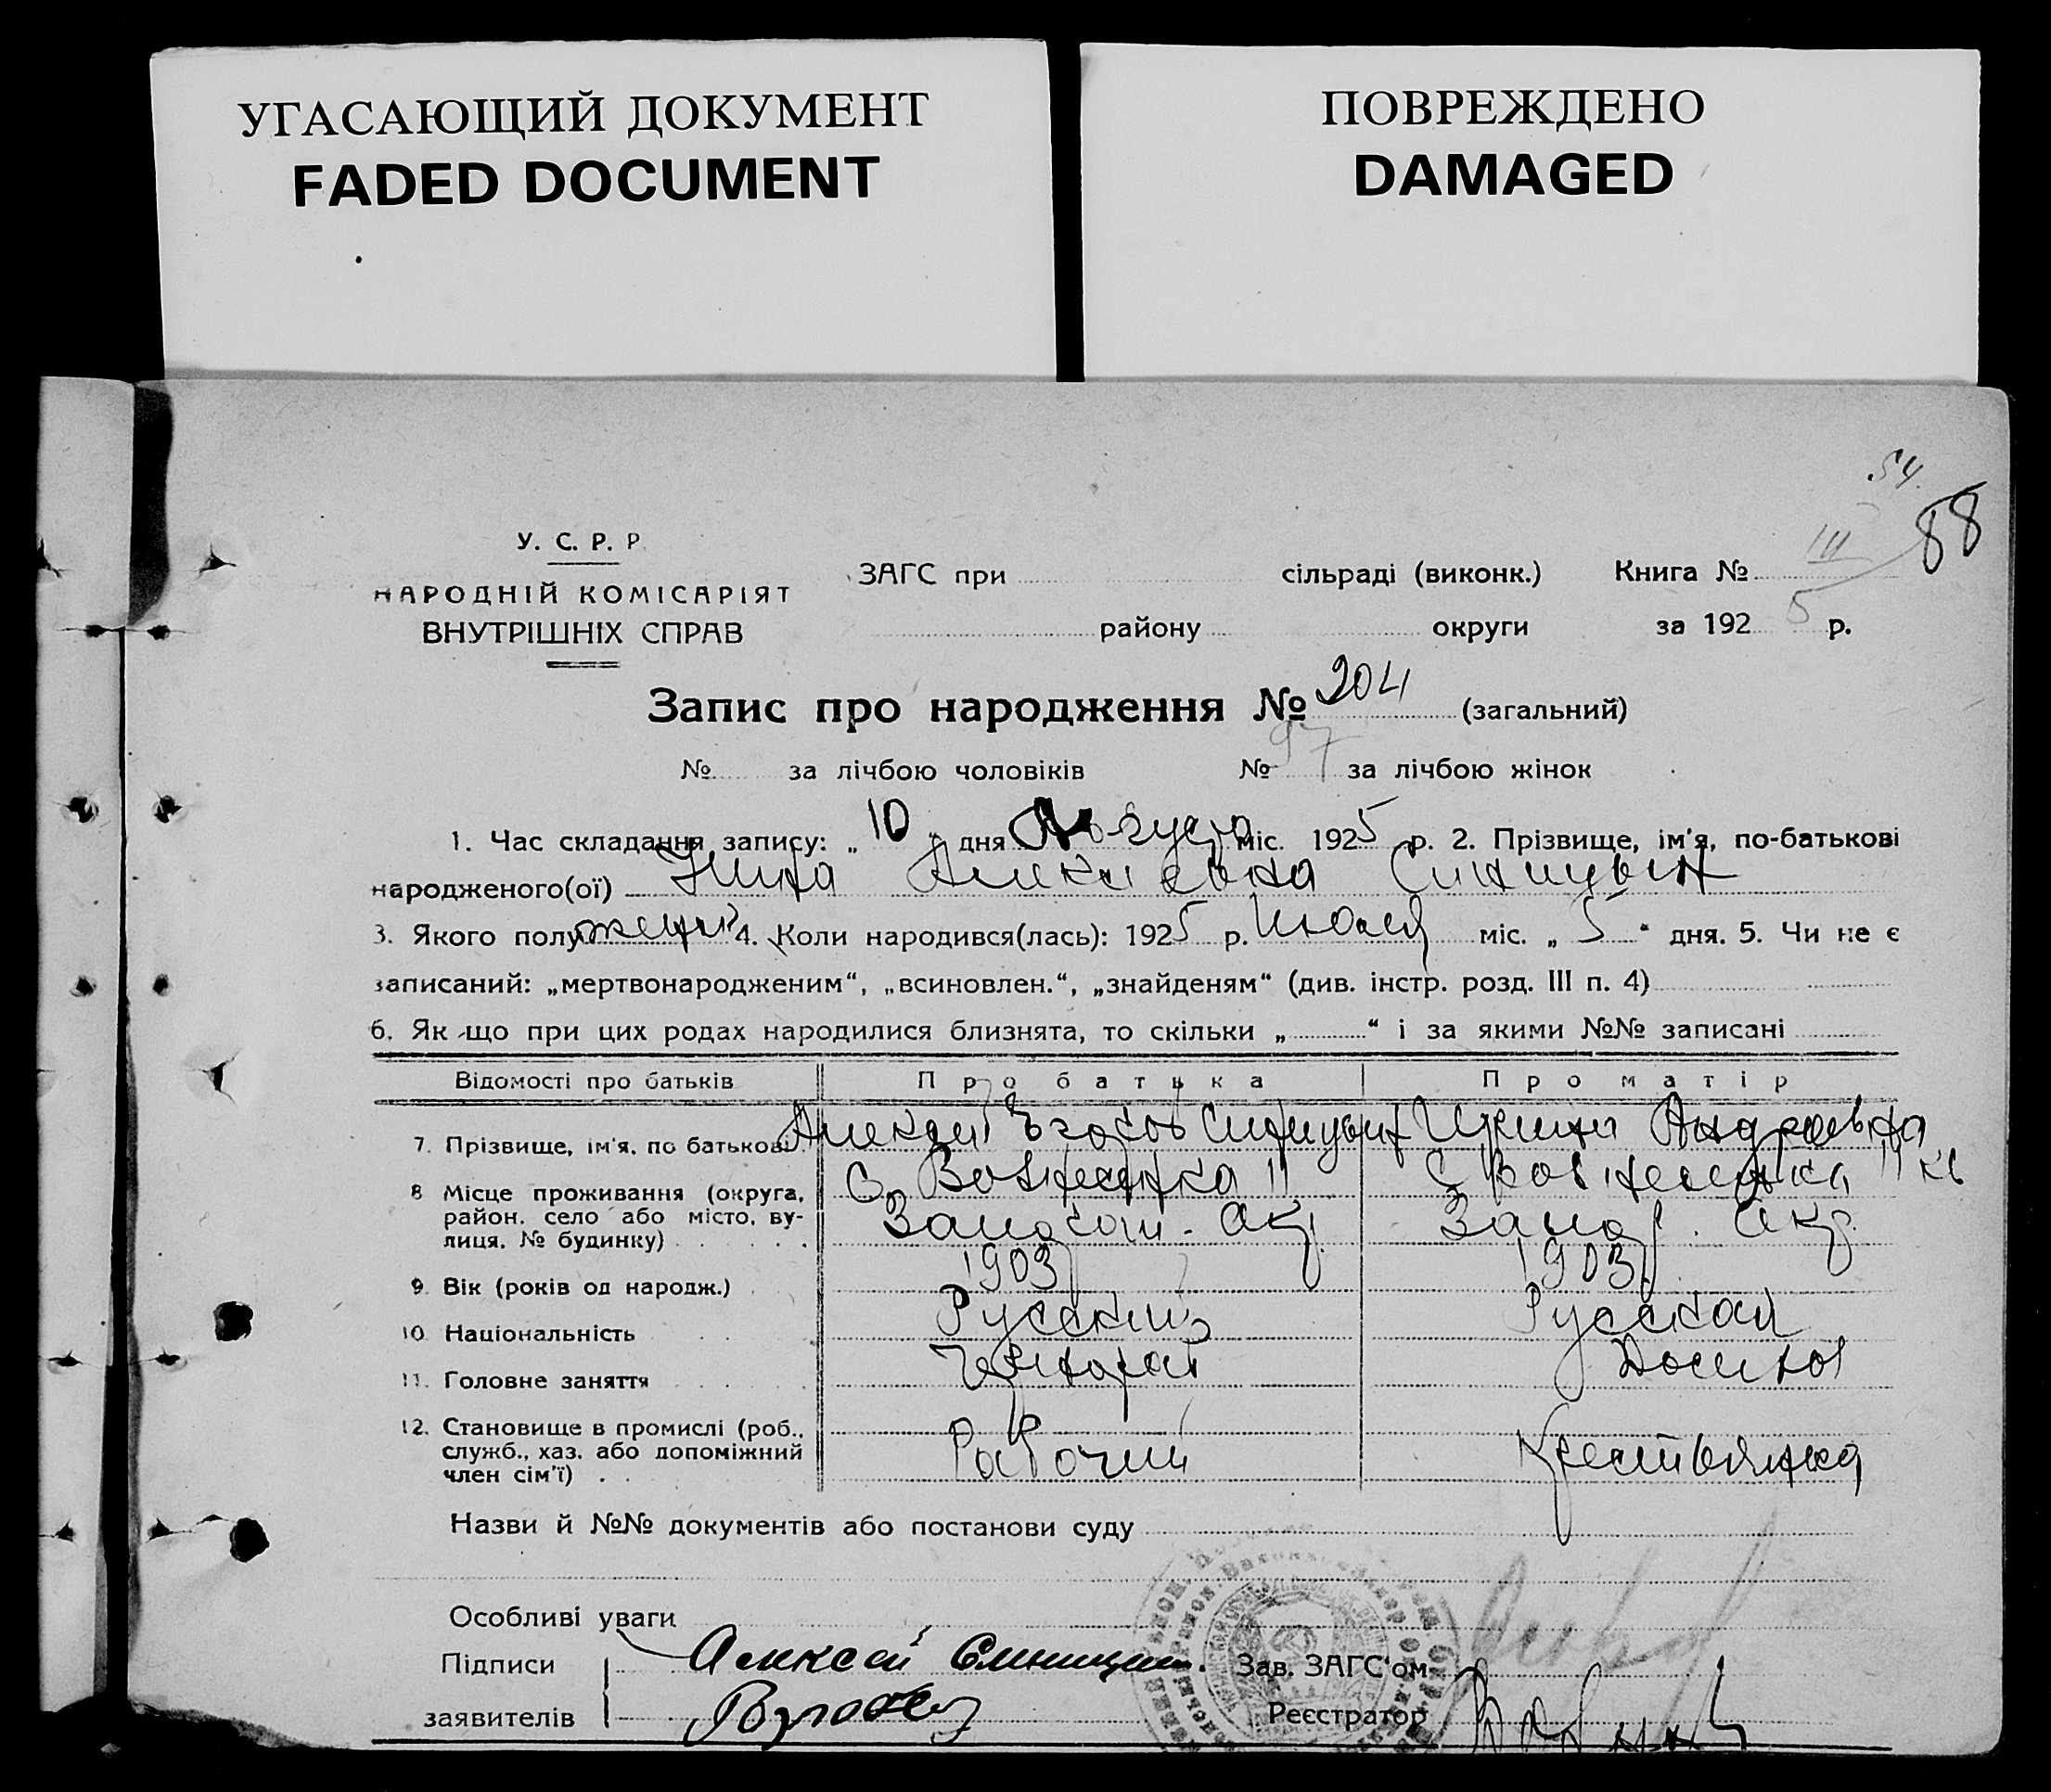 УГАСАЮЩИЙ ДОКУМЕНТ
FADED DOCUMENT
ПОВРЕЖДЕНО
DAMAGED
54.
88
У. С. Р. Р.
НАРОДНІЙ КОМІСАРІЯТ
ВНУТРІШНІХ СПРАВ
ЗАГС при сільраді (виконк.) Книга № III
району округи за 1925 р.
Запис про народження № 204 (загальний)
№ за лічбою чоловіків № 97 за лічбою жінок
1. Час складання запису: „10„ дня Августа міс. 1925 р. 2. Прізвище, ім'я, по-батькові
народженого(ої) Нина Алексеевна Синицын
3. Якого полу женск 4. Коли народився(лась): 1925 р. Июля міс. „5“ дня. 5. Чи не є
записаний: „мертвонародженим“, „всиновлен.“, „знайденям“ (див. інстр. розд. III п. 4)
6. Як що при цих родах народилися близнята, то скільки „ “ і за якими №№ записані
Відомості про батьків Про батька Про матір
7. Прізвище, ім'я, по батькові Алексей Егоров Синицын Ирина Андреевна
8 Місце проживання (округа, С. Вознесенка II С Вознесенка II
район, село або місто, ву- Запорож. Окр. Запор. Окр.
лиця, № будинку)
9. Вік (років од народж.) 1903 1903
10 Національність Русский Русская
11. Головне заняття Домхоз
12. Становище в промислі (роб., Рабочий Крестьянка
служб., хаз. або допоміжний
член сім'ї)
Назви й №№ документів або постанови суду
Особливі уваги
Підписи Алексей Синицин. Зав. ЗАГС'ом
заявителів Реєстратор